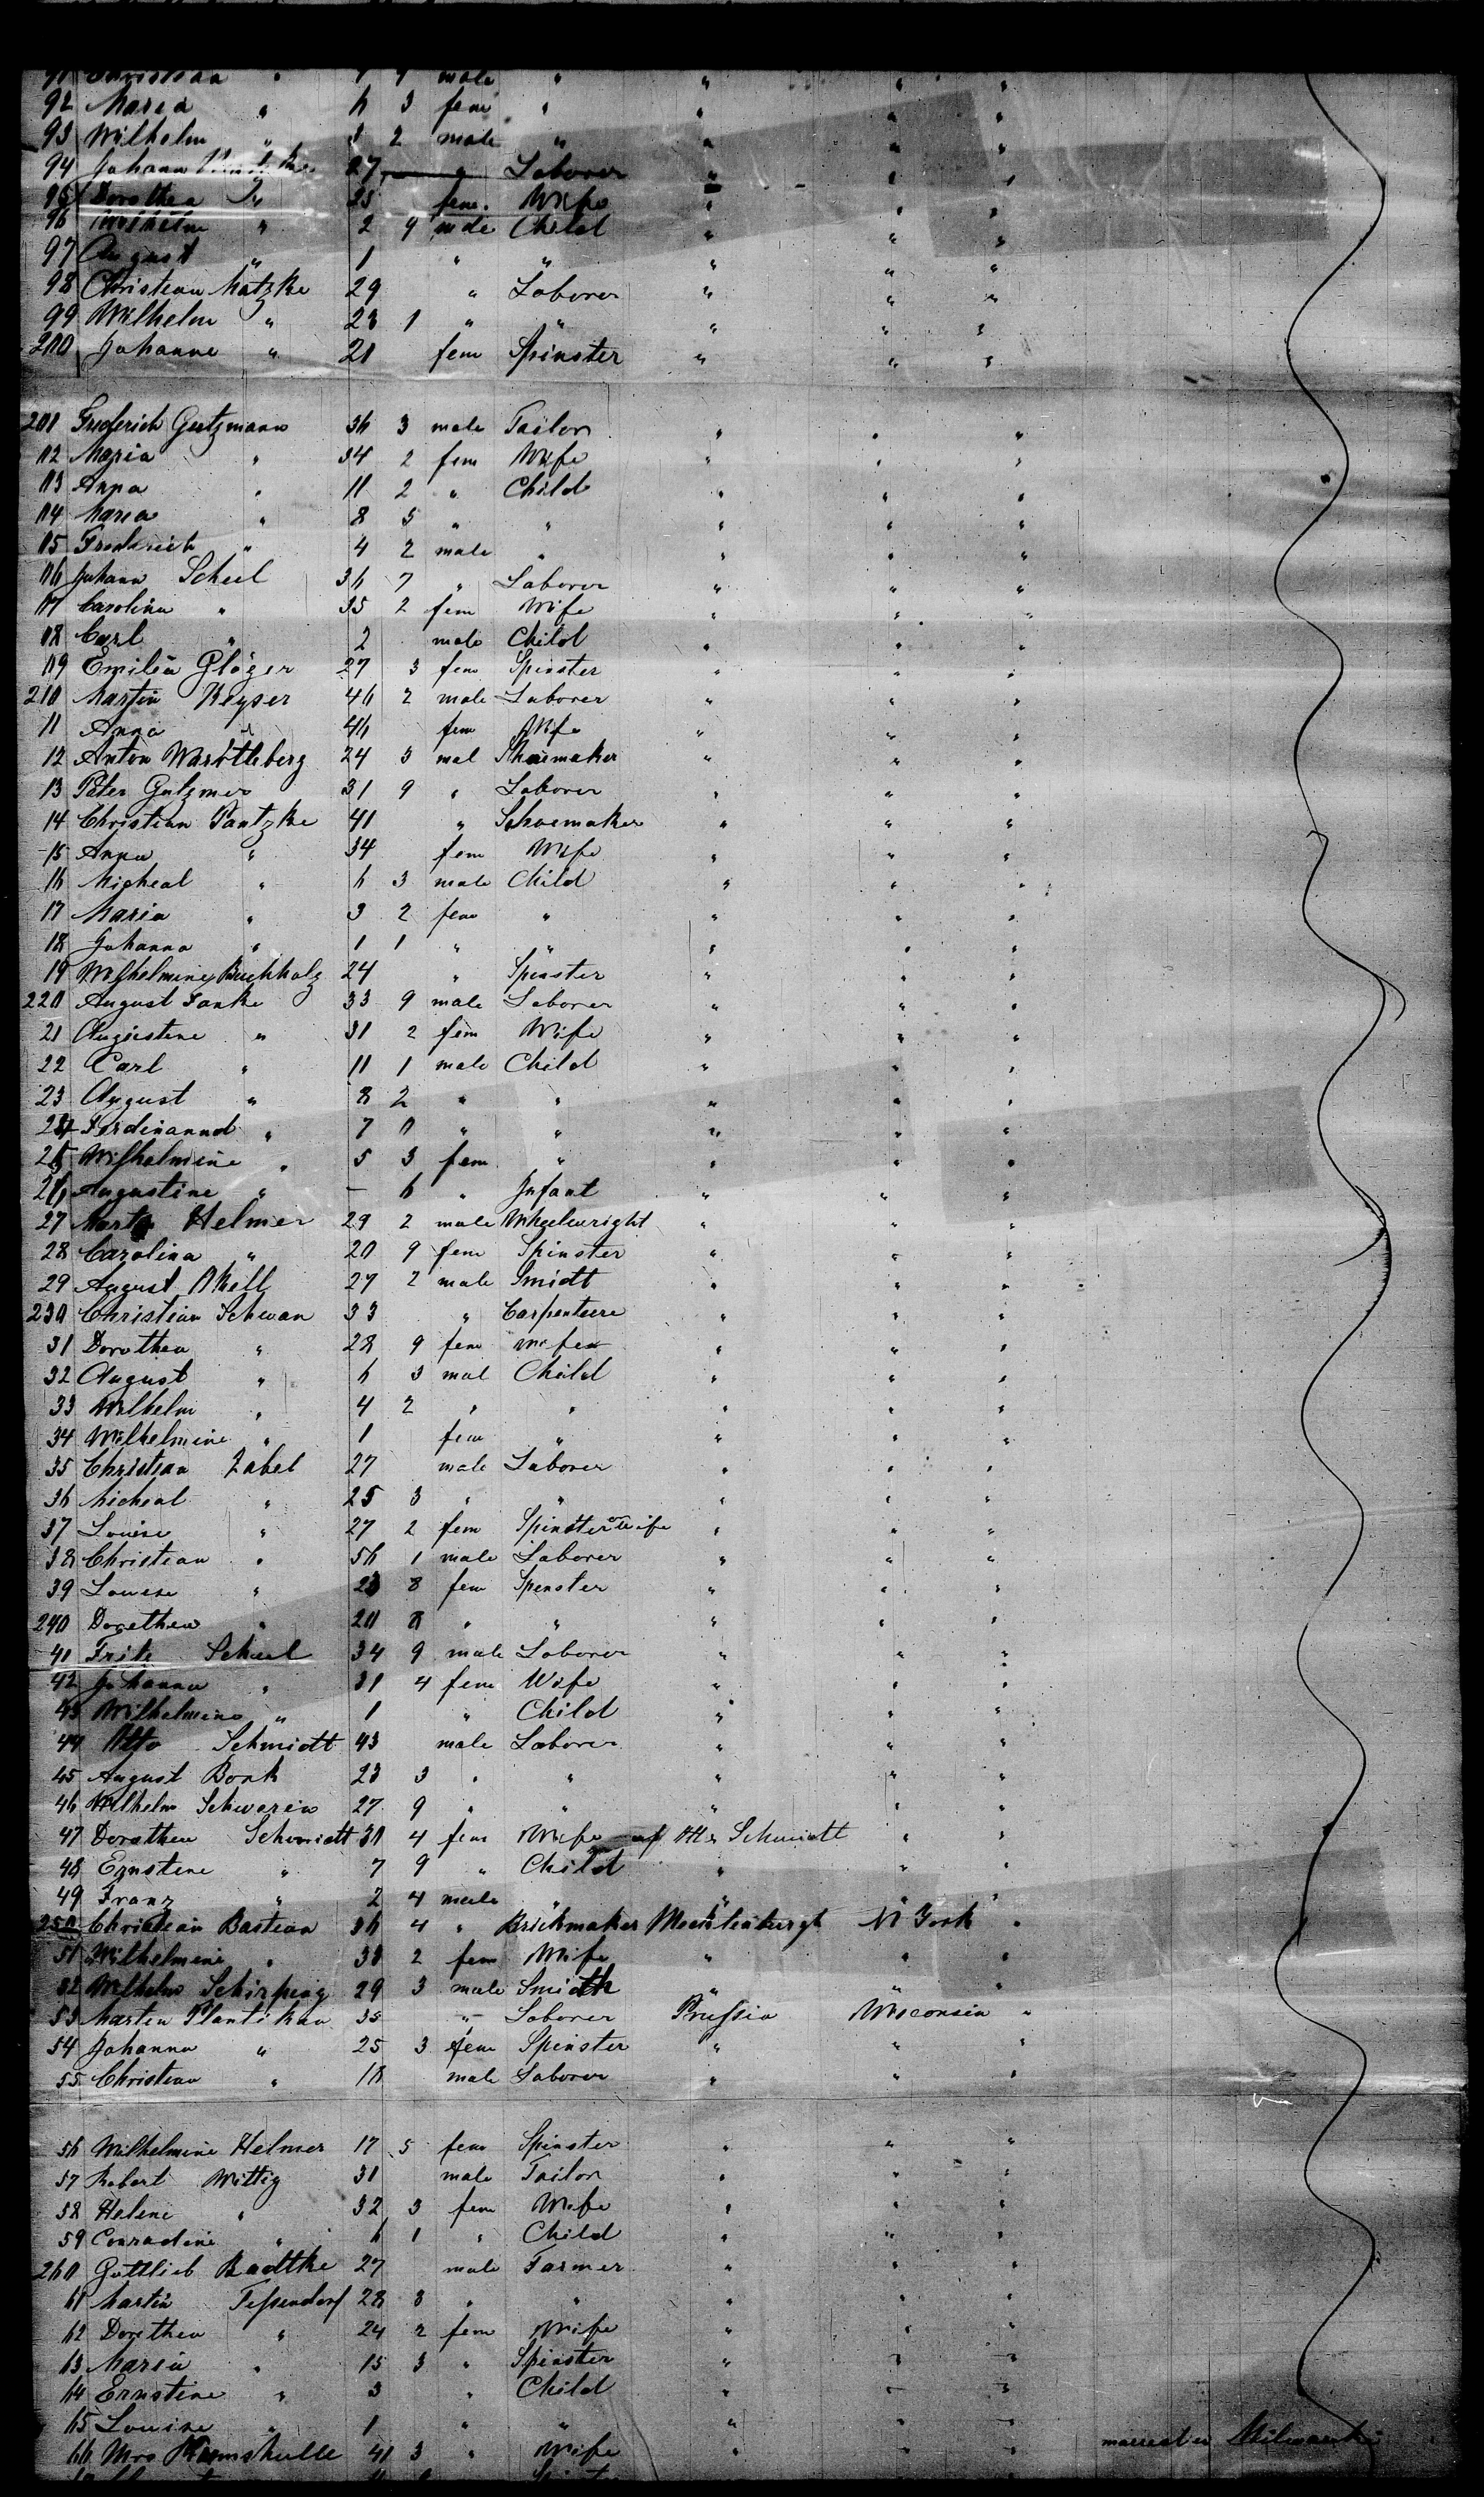 91 Christian " 9 male " " " "
92 Maria " 6 3 fem " " " "
93 Wilhelm " 2 male " " " "
94 Johann 27 " Laborer " " "
95 Dorothea " 25 fem. Wife " " "
96 Wilhelm " 2 9 male Child " " "
97 August " 1 " " " " "
98 Christian Matzke 29 " Laborer " " "
99 Wilhelm " 23 1 " " " " "
200 Johanne " 20 fem Spinster " " "
201 Frederich Gutzmann 36 3 male Tailor " " "
02 Maria " 34 2 fem Wife " " "
03 Anna " 11 2 " Child " " "
04 Maria " 8 5 " " " " "
05 Frederich " 4 2 male " " " "
06 Johann Scheel 36 7 " Laborer " " "
07 Carolina " 35 2 fem Wife " " "
08 Carl " 2 male Child " " "
09 Emilia Glöger 27 3 fem Spinster " " "
210 Martin Keyser 46 2 male Laborer " " "
11 Anna " 46 fem Wife " " "
12 Anton 24 3 mal Shoemaker " " "
13 Peter Gutzmer 31 9 " Laborer " " "
14 Christian Pantzke 41 " Schoemaker " " "
15 Anna " 34 fem Wife " " "
16 Micheal " 6 3 male Child " " "
17 Maria " 3 2 fem " " " "
18 Johanna " 1 1 " " " " "
19 Wilhelmine Buchholz 24 " Spinster " " "
220 August Fanke 33 9 male Laborer " " "
21 Augustine " 31 2 fem Wife " " "
22 Carl " 11 1 male Child " " "
23 August " 8 2 " " " " "
24 Ferdinannd " 7 0 " " " " "
25 Wilhelmine " 5 3 fem " " " "
26 Augustine " - 6 " Infant " " "
27 Martin Helmer 29 2 male Wheelwright " " "
28 Carolina " 20 9 fem Spinster " " "
29 August 27 2 male Smidt " " "
230 Christian Schwan 33 " Carpenteere " " "
31 Dorothea " 28 9 fem Wife " " "
32 August " 6 3 mal Child " " "
33 Wilhelm " 4 2 " " " " "
34 Wilhelmine " 1 fem " " " "
35 Christian Zabel 27 male Laborer " " "
36 Micheal " 25 3 " " " " "
37 Louise " 27 2 fem Spinster or Wife " " "
38 Christian " 56 1 male Laborer " " "
39 Louise " 23 8 fem Spinster " " "
240 Dorothea " 20 8 " " " " "
41 Fritz Scheel 34 9 male Laborer " " "
42 Johanna " 31 4 fem Wife " " "
43 Wilhelmine " 1 " Child " " "
44 Otto Schmidt 43 male Laborer " " "
45 August Bonk 23 3 " " " " "
46 Wilhelm Schwerin 27 9 " " " " "
47 Dorothea Schmidt 30 4 fem Wife of Otto Schmidt " "
48 Ernstine " 7 9 " Child " " "
49 Franz " 2 4 male " " " "
250 Christian Bastian 36 4 " Brickmaker Mecklenburgh N York "
51 Wilhelmine " 30 2 fem Wife " " "
52 Wilhelm Schirping 29 3 male Smidth " " "
53 Martin Plantikan 35 " Laborer Prussia Wisconsin "
54 Johanna " 25 3 fem Spinster " " "
55 Christian " 18 male Laborer " " "
56 Wilhelmine Helmer 17 5 fem Spinster " " "
57 Robert Wittig 31 male Tailor " " "
58 Helene " 32 3 fem Wife " " "
59 Conradine " 6 1 " Child " " "
260 Gottlieb Radtke 27 male Farmer " " "
61 Martin Tessendorf 28 8 " " " " "
62 Dorothea " 24 2 fem Wife " " "
63 Maria " 15 3 " Spinster " " "
64 Ernstine " 3 " Child " " "
65 Louise " 1 " " " " "
66 Mrs 41 3 " Wife " " " married in Milwaukie